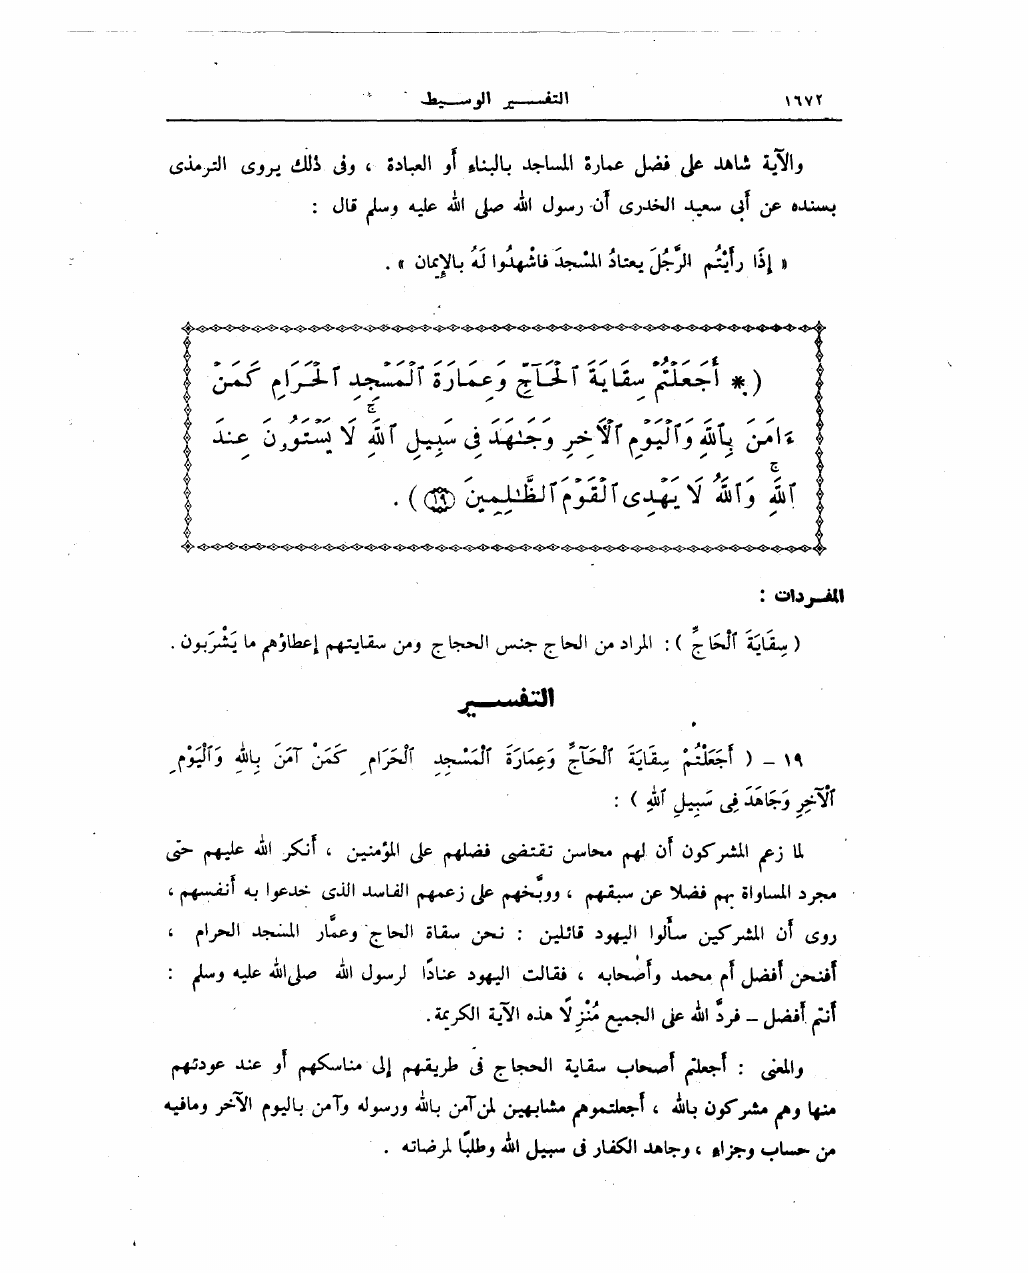 ١٦٧٢ التفسير الوسيط
والآية شاهد على فضل عمارة المساجد بالبناء أو العبادة ، وفى ذلك يروى الترمذى
بسنده عن أبى سعيد الخدرى أن رسول الله صلى الله عليه وسلم قال :
« إِذَا رأَيْتُم الرَّجُلَ يعتادُ المسْجدَ فاشْهدُوا لَهُ بالإِيمان » .
( * أَجَعَلْتُمْ سِقَايَةَ ٱلْحَآجِّ وَعِمَارَةَ ٱلْمَسْجِدِ ٱلْحَرَامِ كَمَنْ
ءَامَنَ بِٱللَّهِ وَٱلْيَوْمِ ٱلْأَخِرِ وَجَـٰهَدَ فِى سَبِيلِ ٱللَّهِۚ لَا يَسْتَوُۥنَ عِندَ
ٱللَّهِۚ وَٱللَّهُ لَا يَهْدِى ٱلْقَوْمَ ٱلظَّـٰلِمِينَ ١٩ ) .
المفـردات :
( سِقَايَةَ ٱلْحَاجِّ ) : المراد من الحاج جنس الحجاج ومن سقايتهم إعطاؤهم ما يَشْرَبون .
التفســـير
١٩ – ( أَجَعَلْتُمْ سِقَايَةَ ٱلْحَآجِّ وَعِمَارَةَ ٱلْمَسْجِدِ ٱلْحَرَامِ كَمَنْ آمَنَ بِاللهِ وَٱلْيَوْمِ
ٱلْآخِرِ وَجَاهَدَ فِى سَبِيلِ ٱللهِ ) :
لما زعم المشركون أن لهم محاسن تقتضى فضلهم على المؤمنين ، أنكر الله عليهم حتى
مجرد المساواة بهم فضلا عن سبقهم ، ووبَّخهم على زعمهم الفاسد الذى خدعوا به أنفسهم ،
روى أن المشركين سألوا اليهود قائلين : نحن سقاة الحاج وعمَّار المسجد الحرام ،
أفنحن أفضل أم محمد وأصحابه ، فقالت اليهود عنادًا لرسول الله صلى الله عليه وسلم :
أنتم أفضل – فردَّ الله على الجميع مُنْزِلًا هذه الآية الكريمة.
والمعنى : أجعلتم أصحاب سقاية الحجاج فى طريقهم إلى مناسكهم أو عند عودتهم
منها وهم مشركون بالله ، أجعلتموهم مشابهين لمن آمن بالله ورسوله وآمن باليوم الآخر ومافيه
من حساب وجزاء ، وجاهد الكفار فى سبيل الله وطلبًا لمرضاته .